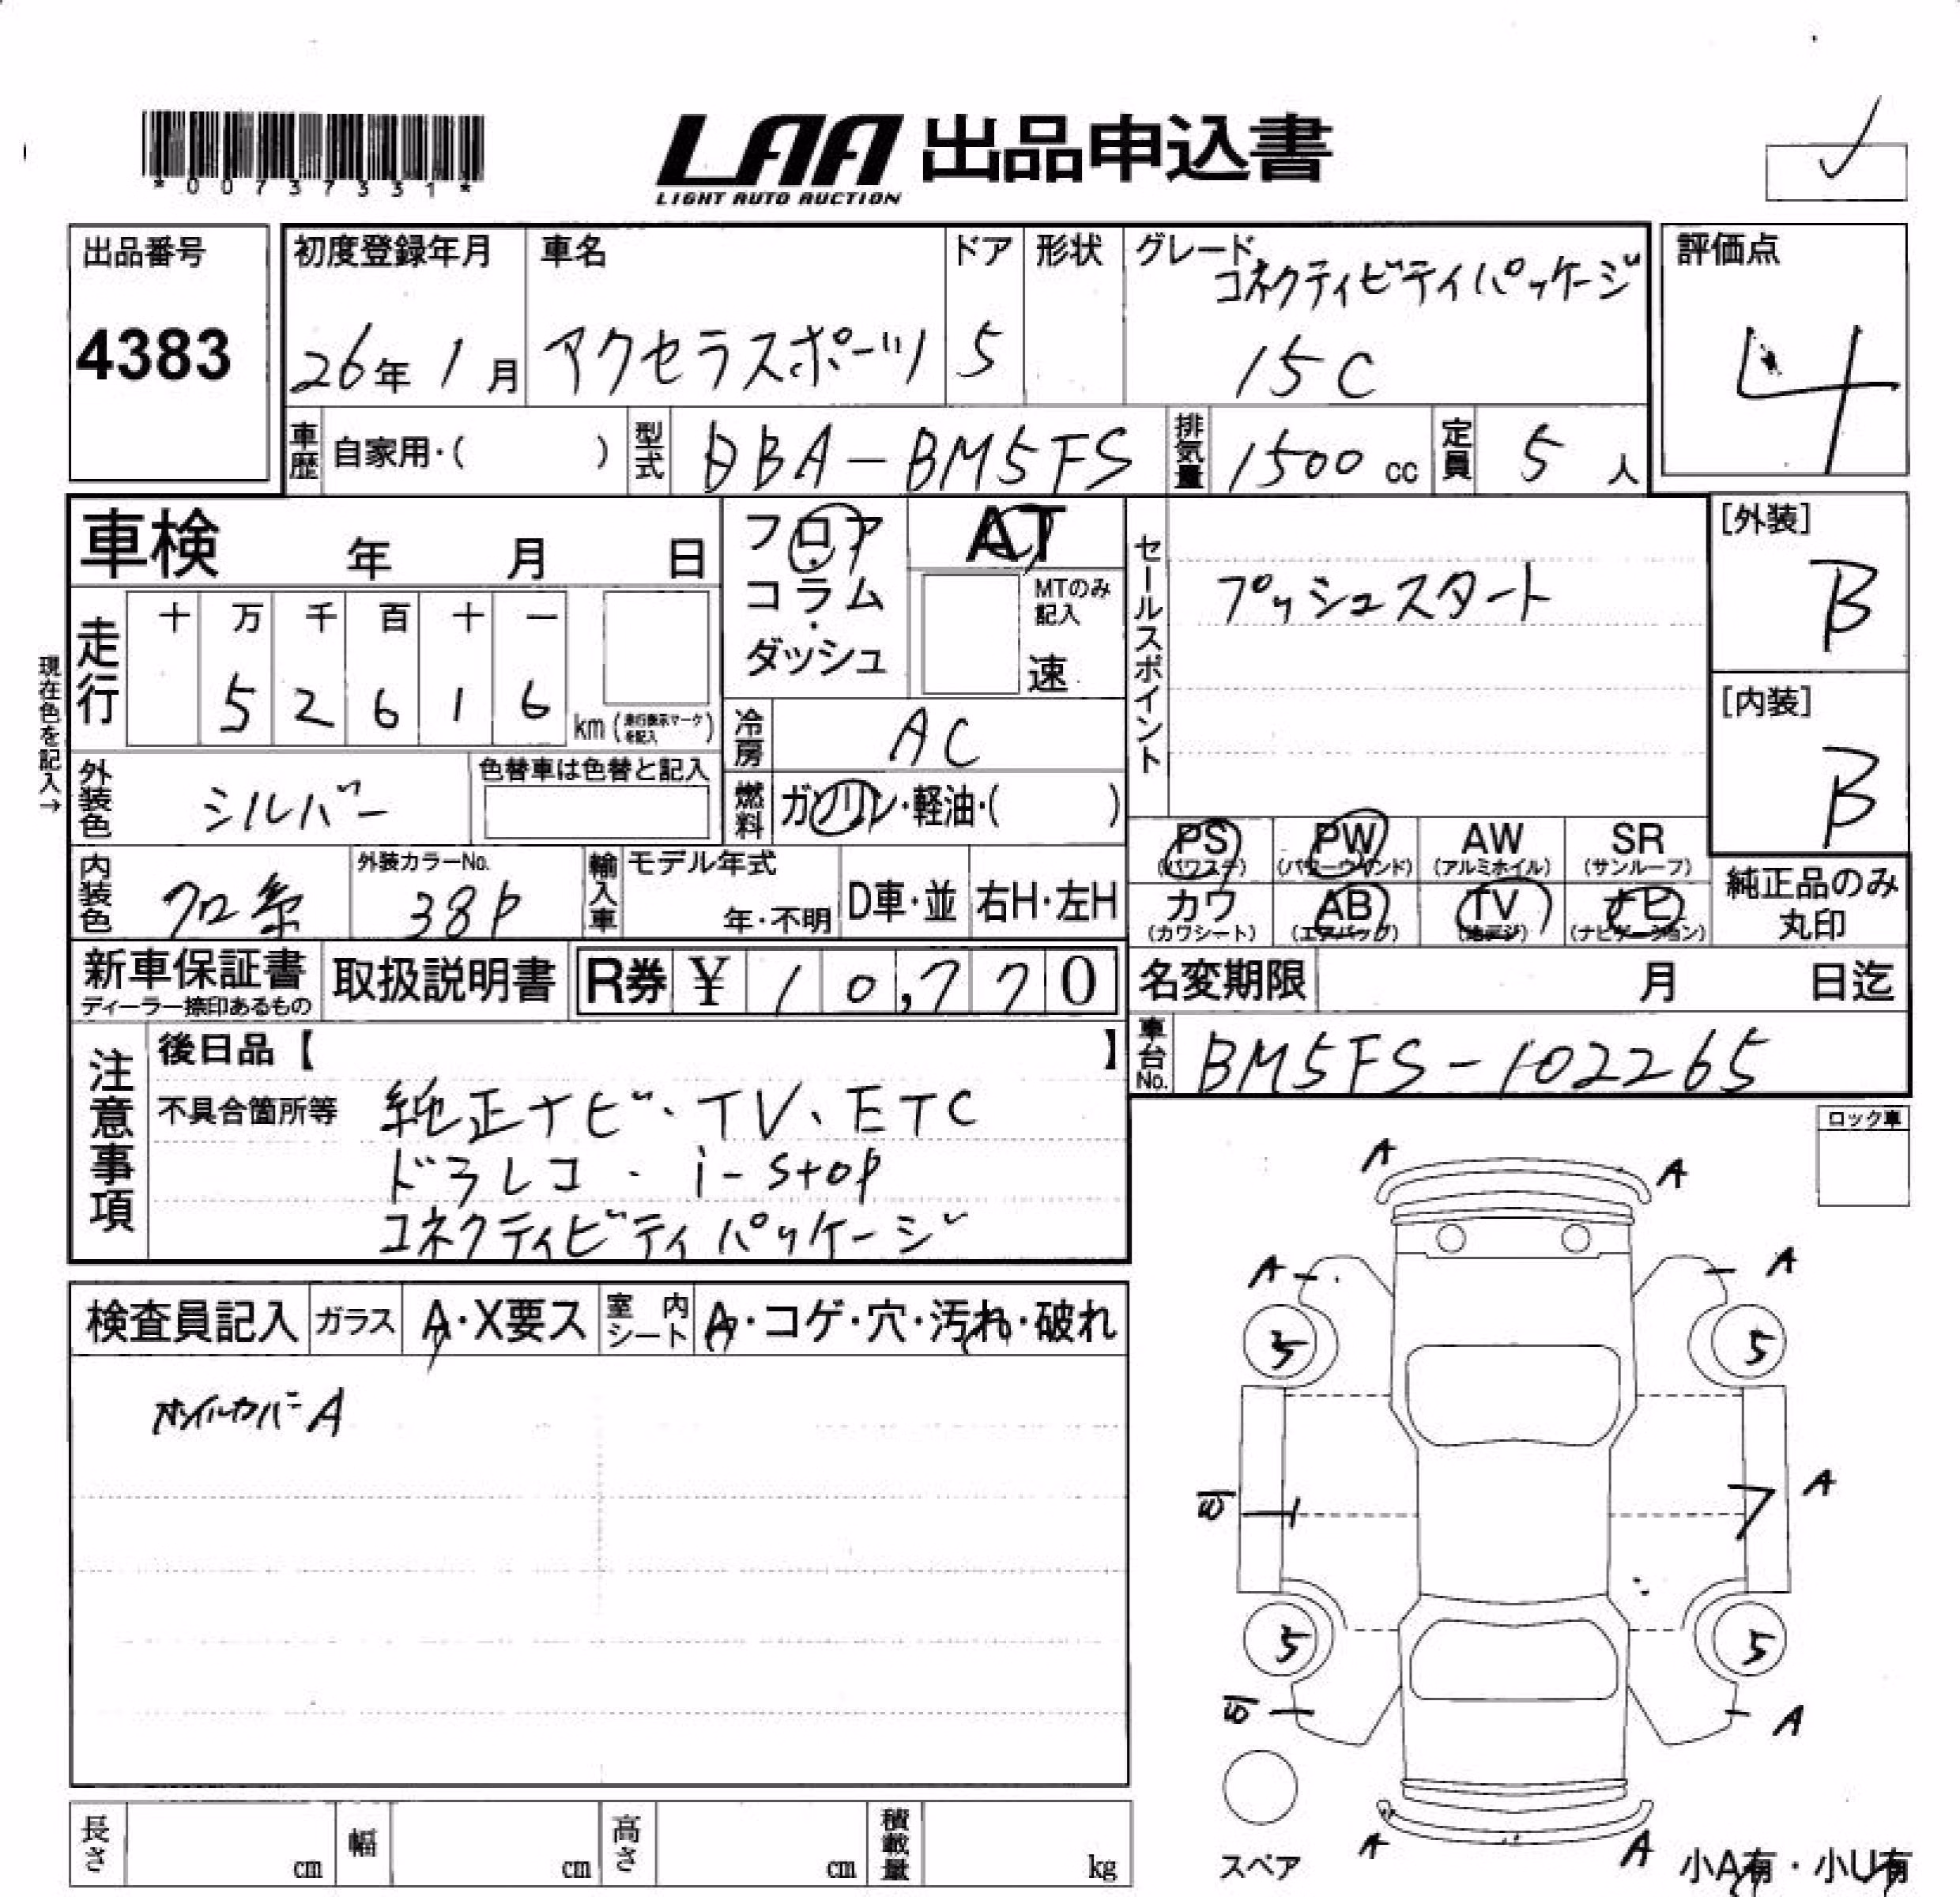 *00737331*
LAA 出品申込書
LIGHT AUTO AUCTION
出品番号
4383
初度登録年月
26年 1月
車名
アクセラスポーツ
ドア
5
形状
グレード
コネクティビティパッケージ
15C
評価点
4
車歴 自家用・( )
型式 DBA-BM5FS
排気量 1500 cc
定員 5 人
車検 年 月 日
フロア・コラム・ダッシュ
AT
MTのみ記入
速
セールスポイント
プッシュスタート
[外装]
B
[内装]
B
現在色を記入→
走行
十 万 千 百 十 一
5 2 6 1 6
km (走行表示マークを記入)
冷房 AC
燃料 ガソリン・軽油・( )
外装色 シルバー
色替車は色替と記入
内装色 クロ系
外装カラーNo.
38P
輸入車
モデル年式
年・不明
D車・並
右H・左H
PS (パワステ)
PW (パワーウインド)
AW (アルミホイル)
SR (サンルーフ)
カワ (カワシート)
AB (エアバッグ)
TV (地デジ)
ナビ (ナビゲーション)
純正品のみ丸印
新車保証書
ディーラー捺印あるもの
取扱説明書
R券 ¥ 10,770
名変期限 月 日迄
車台No. BM5FS-102265
注意事項
後日品【 】
不具合箇所等 純正ナビ・TV、ETC
ドラレコ・i-stop
コネクティビティパッケージ
ロック車
検査員記入
ガラス A・X要ス
室内シート A・コゲ・穴・汚れ・破れ
ホイルカバーA
A A
A A
5 5
A
5 5
A
A A
スペア
小A有・小U有
長さ cm
幅 cm
高さ cm
積載量 kg